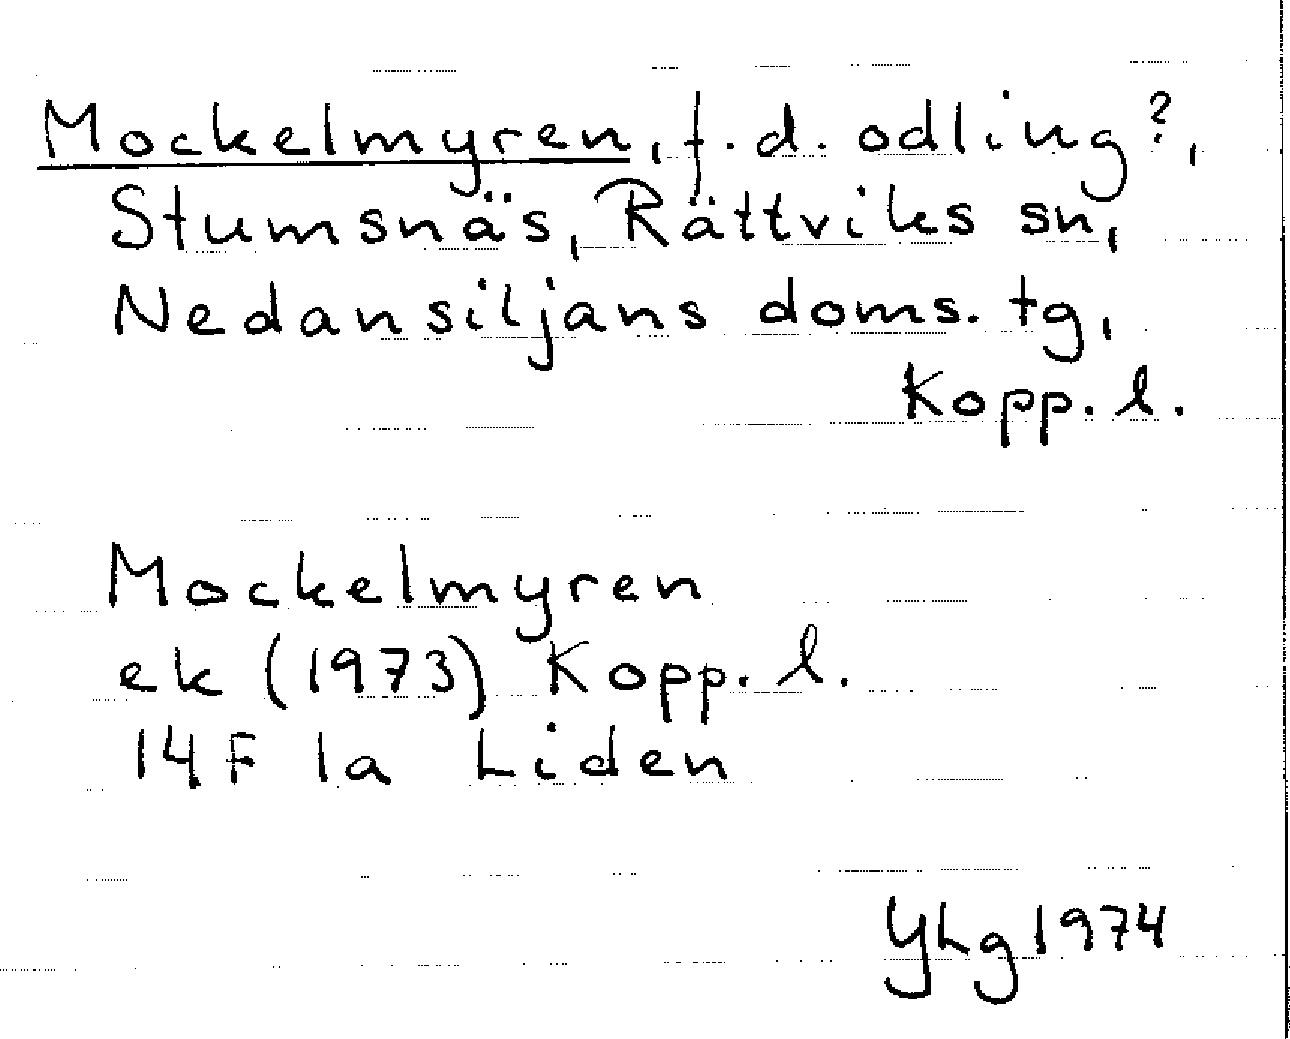 Mockelmyren, f.d. odling?,
Stumsnäs, Rättviks sn,
Nedansiljans doms. tg,
Kopp. l.
Mockelmyren
ek (1973) Kopp. l.
14F 1a Liden
YLg 1974